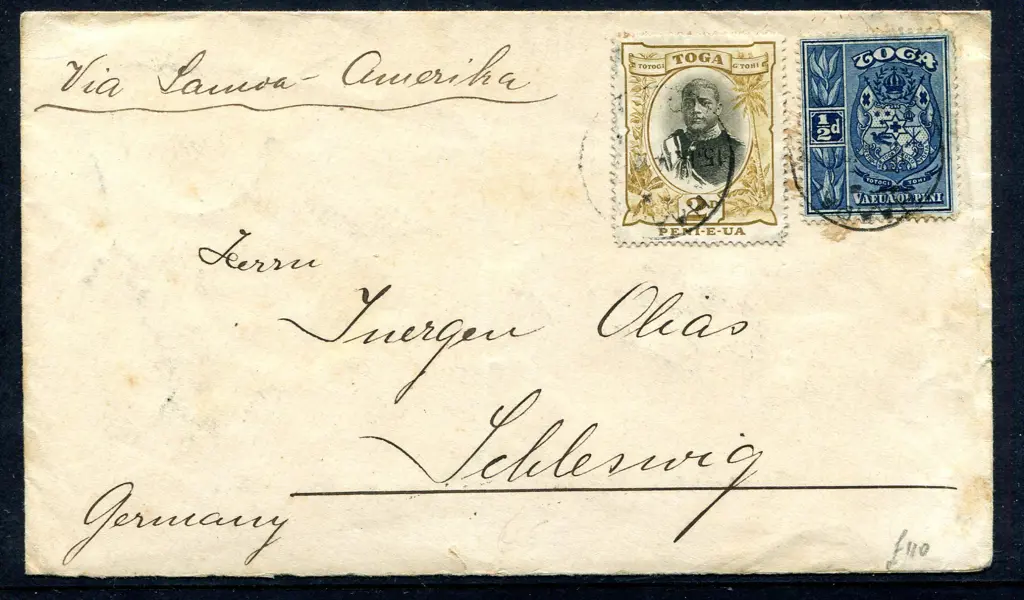 Via Samoa - Amerika
TOGA
TOTOGI TOHI
2D
PENI-E-UA
TOGA
½d
TOTOGI TOHI
VAEUA OE PENI
Herrn
Juergen Olias
Schleswig
Germany
£40